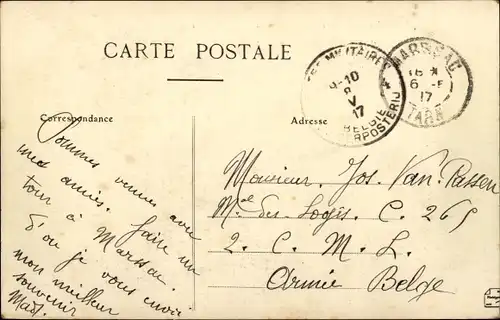 CARTE POSTALE
Correspondance
Adresse
POSTES MILITAIRES
9-10
8
V
17
BELGIE
LEGERPOSTERIJ
MARSSAC
16 *
6 - 5
17
TARN
Sommes venues avec
mes amies. faire un
tour à Marssac.
d'où je vous envoie
mon meilleur
souvenir
Mad.
Monsieur. Jos. Van. Passen
Mal des Logis. C. 265
2. C. M. L.
Armée Belge